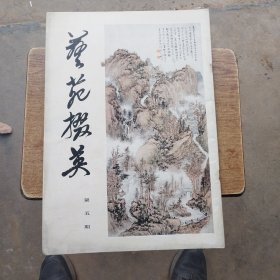 艺苑掇英
第五期